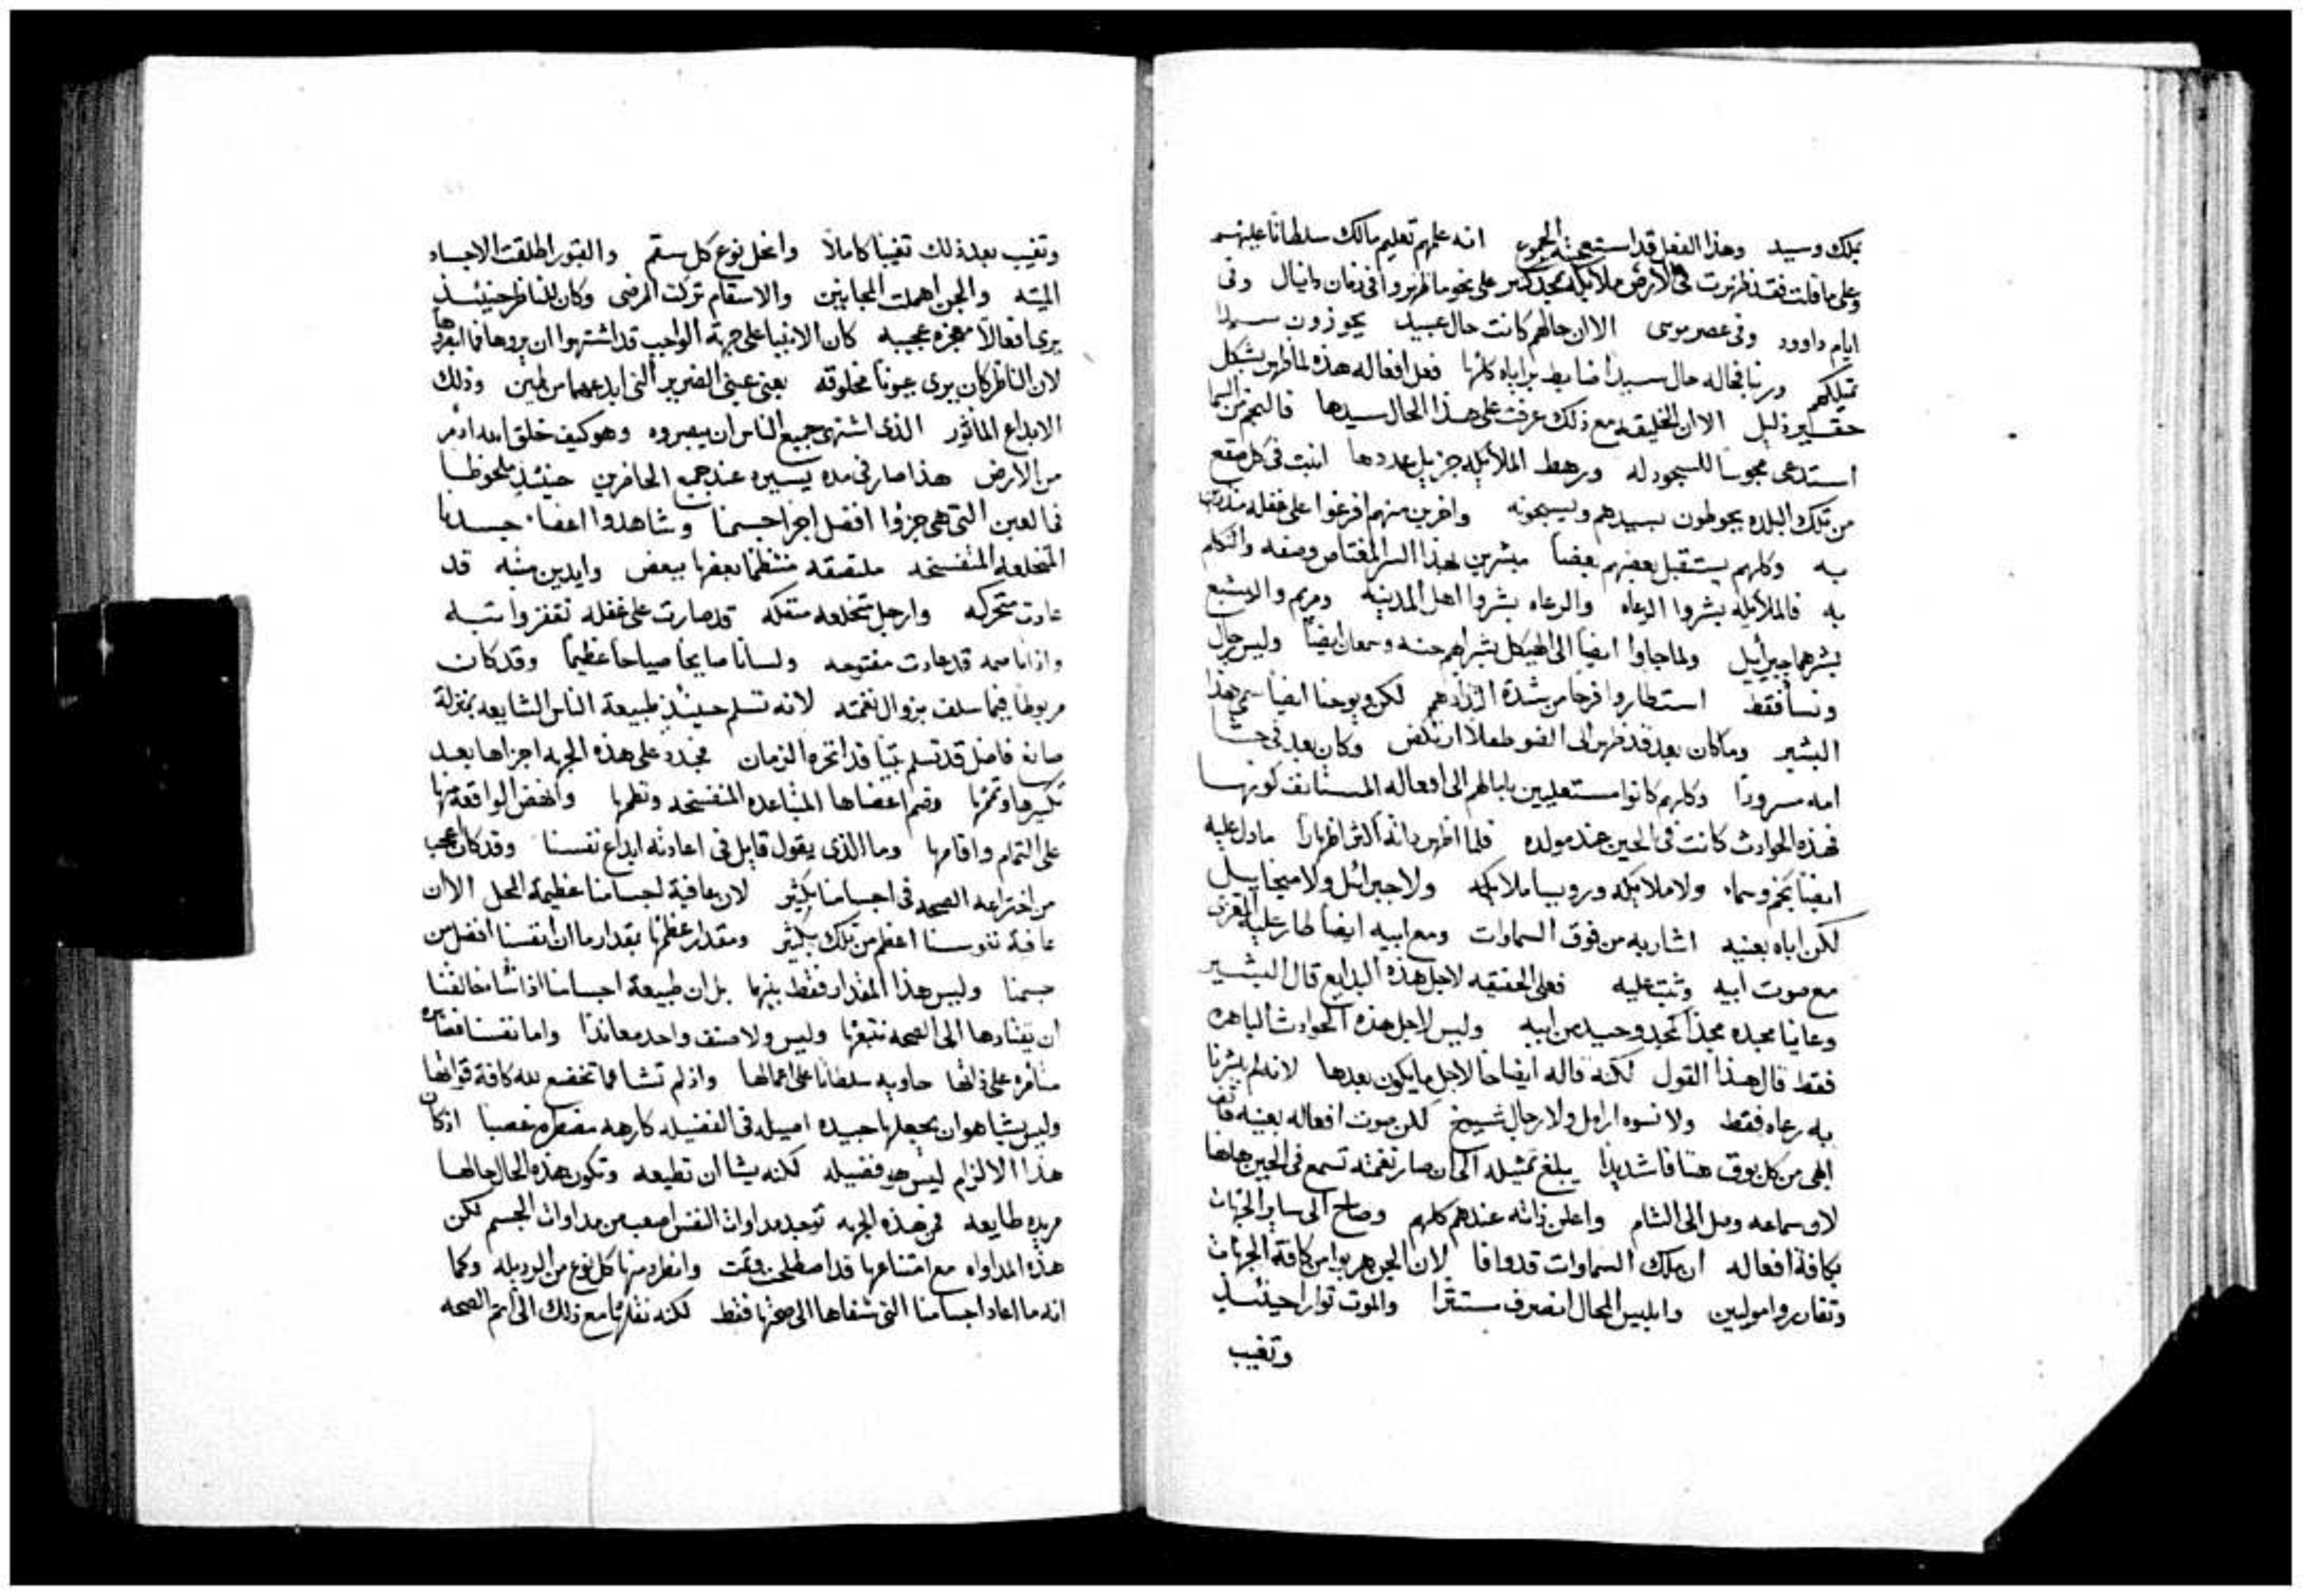 بملك وسيد وهذا الفعل قد استعجبته الجموع انه علمهم تعليم مالك سلطانا عليهم
وعلى ما قلت فقد ظهرت في الارض ملايكه بمجد كثير على نحو ما ظهروا في زمان دانيال وفي
ايام داوود وفي عصر موسى الا ان حالهم كانت حال عبيد يحوزون سيدا
تملكهم وربنا فحاله حال سيدا ضابط براياه كلها فعل افعاله هذه لما ظهر بشكل
حقير ذليل الا ان الخليقه مع ذلك عرفت على هذا الحال سيدها فالنجم من السما
استدعى مجوسا للسجود له ورهط الملايكه جزيل عددها انبث في كل صقع
من تلك البلده يحوطون بسيدهم ويسبحونه واخرين منهم افرغوا على غفله منذرين
به وكلهم يستقبل بعضهم بعضا مبشرين بهذا السر المعتاص وصفه والتكلم
به فالملايكه بشروا الرعاه والرعاه بشروا اهل المدينه ومريم واليشبع
بشرهما جبرائيل ولما جاوا ايضا الى الهيكل بشراهم حنه وسمعان ايضا وليس رجال
ونسا فقط استطاروا فرحا من شدة لكن ويوحنا ايضا سمي هذا
البشير وما كان بعد قد ظهر الى الضو طفلا ارتكض وكان بعد في حشا
امه مسرورا وكلهم كانوا مستعليين بابالهم الى افعاله المستانف كونها
فهذه الحوادث كانت في الحين عند مولده فلما اظهر ذاته اكثر اظهارا ما دل عليه
ايضا نجم وسما ولا ملايكه وروسا ملايكه ولا جبرائل ولا ميخاييل
لكن اباه بعينه اشار به من فوق السماوات ومع ابيه ايضا طار عليه المعزي
مع صوت ابيه وثبت عليه فعلى الحقيقه لاجل هذه البدايع قال البشير
وعاينا مجده مجدا كمجد وحيد من ابيه وليس لاجل هذه الحوادث الباهره
فقط قال هذا القول لكنه قاله ايضا لاجل ما يكون بعدها لانه لم يبشرنا
به رعاه فقط ولا نسوه ارامل ولا رجال شيوخ لكن صوت افعاله بعينه هتف
ابهى من كل بوق هتافا شديدا يبلغ تمثيله الى ان صار نغمته تسمع في الحين هاهنا
لان سماعه وصل الى الشام واعلن ذاته عندهم كلهم وصاح الى ساير الجهات
بكافة افعاله ان ملك السماوات قد وافا لان الجن هربوا من كافة الجهات
وتقافزوا مولين وابليس المحال انصرف مستترا والموت توارا حينيذ
وتغيب
وتغيب بعد ذلك تغيبا كاملا وانحل نوع كل سقم والقبور اطلقت الاجساد
الميته والجن اهملت المجانين والاسقام تركت المرضى وكان للناظر حينيذ
يرى افعالا معجزه عجيبه كان الانبيا على جهة الواجب قد اشتهوا ان يروها فما ابصروها
لان الناظر كان يرى عيونا مخلوقه يعني عيني الضرير التي ابدعهما من طين وذلك
الابداع الماثور الذي اشتهى جميع الناس ان يبصروه وهو كيف خلق الله ادم
من الارض هذا صار في مده يسيره عند جميع الحاضرين حينيذ ملحوظا
في العين التي هي جزوا افضل اجزا جسمنا وشاهدوا اعضا جسدنا
المتخلعه المتفسخه ملتصقه منتظما بعضها ببعض وايدين ميته قد
عادت متحركه وارجل متخلعه متفككه قد صارت على غفله تقفز واثبه
واذانا صمه قد عادت مفتوحه ولسانا صايحا صياحا عظيما وقد كان
مربوطا فيما سلف بزوال نغمته لانه تسلم حينيذ طبيعة الناس الشايعه بمنزلة
صانع فاضل قد تسلم بيتا قد انخره الزمان مجدد على هذه الجهه اجزاها بعد
تكسيرها وتمزيها وضم اعضاها المتباعده المتفسخه ونظمها وانهض الواقعه منها
على التمام واقامها وما الذي يقول قايل في اعادته ابداع نفسنا وقد كان اعجب
من اختراعه الصحه في اجسامنا بكثير لان عافية اجسامنا عظيمة المحل الا ان
عافية نفوسنا اعظم من تلك بكثير ومقدار عظمها بمقدار ما ان انفسنا افضل من
جسمنا وليس هذا المقدار فقط بينهما بل ان طبيعة اجسامنا اذا شا خالقنا
ان يقتادها الى الصحه تتبعها وليس ولا صنف واحد معاندا واما نفسنا فصايره
متامره على ذاتها حاويه سلطانا على اعمالها واذ لم تشا فما تخضع لله كافة قواتها
وليس يشا هو ان يجعلها جيده اصيله في الفضيله كارهه مضطره غصبا اذ كان
هذا الالزام ليس هو فضيله لكنه يشا ان تطيعه وتكون هذه الحال حالها
مريده طايعه فمن هذه الجهه توجد مداوات النفس اصعب من مداوات الجسم لكن
هذه المداواه مع امتناعها قد اصطلحت وتمت وانطرد منها كل نوع من الرديله وكما
انه ما اعاد اجسامنا التي شفاها الى صحتها فقط لكنه نقلها مع ذلك الى اتم الصحه